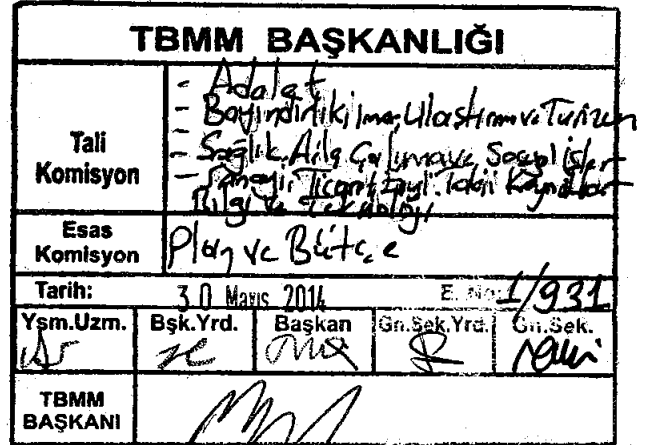 TBMM BAŞKANLIĞI
Tali Komisyon
- Adalet
- Bayındırlık, İmar, Ulaştırma ve Turizm
- Sağlık, Aile, Çalışma ve Sosyal İşler
- Sanayi, Ticaret, Enerji, Tabii Kaynaklar
Bilgi ve Teknoloji
Esas Komisyon
Plan ve Bütçe
Tarih: 30 Mayıs 2014 E. No: 1/931
Yşm.Uzm. Bşk.Yrd. Başkan Gn.Sek.Yrd. Gn.Sek.
TBMM BAŞKANI